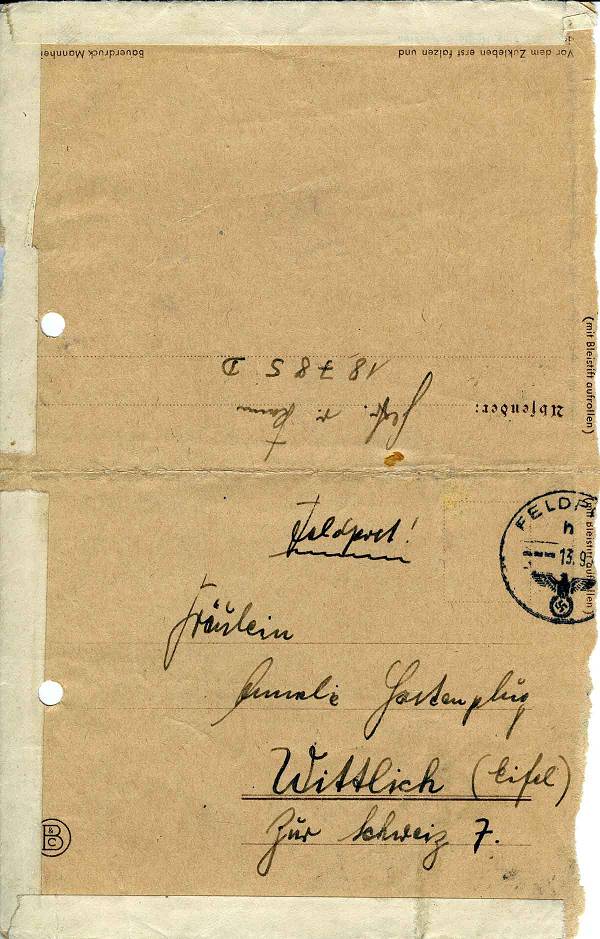 Vor dem Zukleben erst falzen und
Bauerdruck Mannhei
(mit Bleistift aufrollen)
Absender:
18785 D
Feldpost!
FELDP
h
13.9.
(mit Bleistift aufrollen)
Fräulein
Annelie Hastenplug
Wittlich (Eifel)
Zür Schweiz 7.
B&C